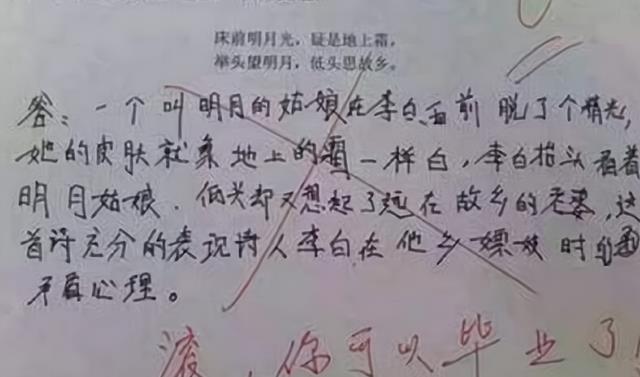 床前明月光，疑是地上霜，
举头望明月，低头思故乡。
答：一个叫明月的姑娘在李白面前脱了个精光，
她的皮肤就象地上的霜一样白，李白抬头看着
明月姑娘．低头却又想起了远在故乡的老婆，这
首诗充分的表现诗人李白在他乡嫖妓时的
矛盾心理。
滚，你可以毕业了！